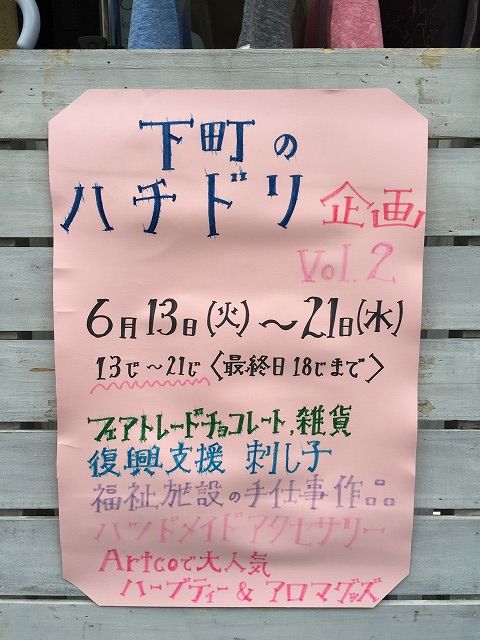 下町の
ハチドリ 企画
Vol.2
6月13日(火)〜21日(水)
13じ〜21じ〈最終日18じまで〉
フェアトレードチョコレート,雑貨
復興支援 刺し子
福祉施設の手仕事作品
ハンドメイドアクセサリー
Artcoで大人気
ハーブティー & アロマグッズ